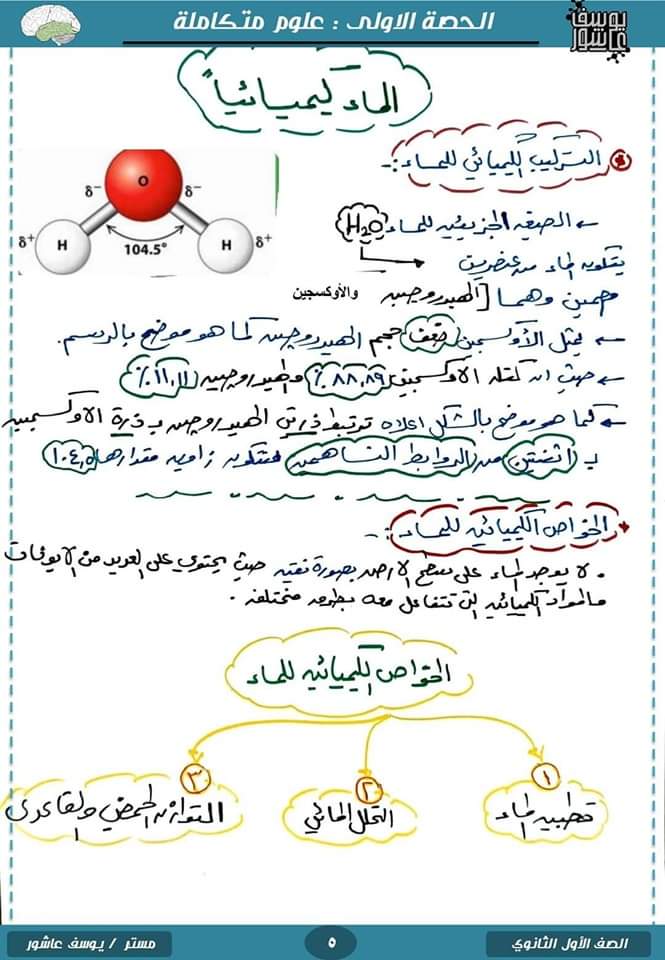 الحصة الاولى : علوم متكاملة
يوسف عاشور
الماء كيميائياً
التركيب الكيميائي للماء :-
O
δ- δ-
δ+ H 104.5° H δ+
← الصيغه الجزيئيه للماء H₂O
يتكون الماء من عنصرين
مهمين وهما [الهيدروجين والأوكسجين
← يمثل الأوكسجين ضعف حجم الهيدروجين كما هو موضح بالرسم.
← حيث ان كتله الاوكسجين ٨٨,٨٩٪ والهيدروجين ١١,١١٪
← كما هو موضح بالشكل اعلاه ترتبط ذرتي الهيدروجين بذرة الاوكسجين
بـ اثنتين من الروابط التساهميه فتتكون زاويه مقدارها ١٠٤,٥
* الخواص الكيميائيه للماء :-
. لا يوجد الماء على سطح الارض بصورة نقيه حيث يحتوي على العديد من الايونات
والمواد الكيميائيه التى تتفاعل معه بطرق مختلفه .
الخواص الكيميائيه للماء
١ ٢ ٣
قطبيه الماء
التحلل المائي
التوازن الحمضي والقاعدى
الصف الأول الثانوي
٥
مستر / يوسف عاشور